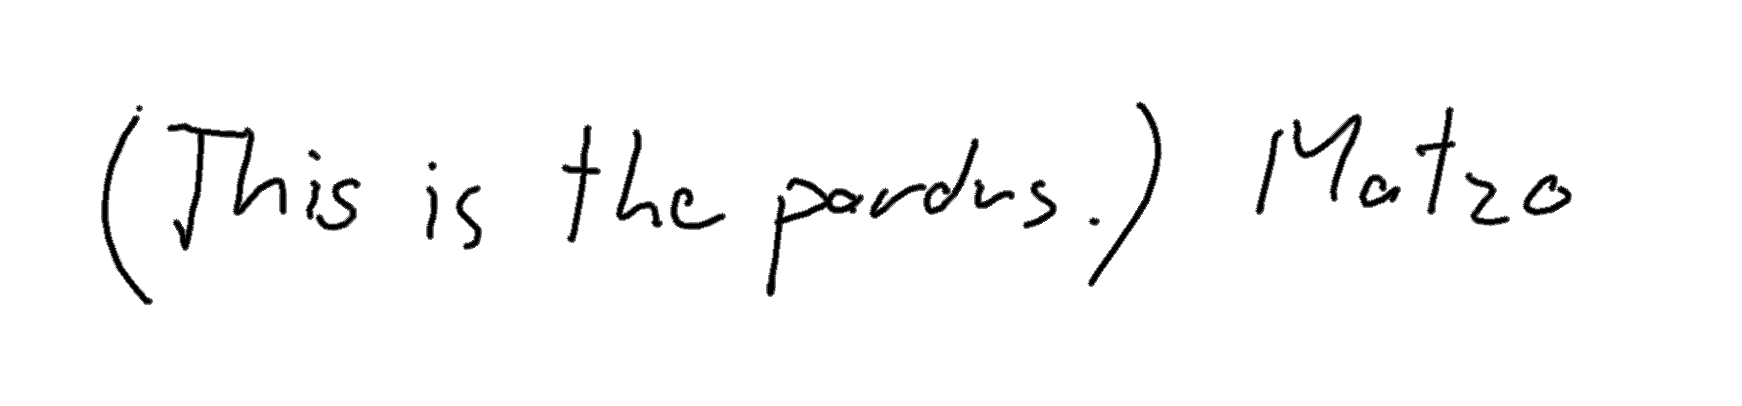 (This is the pardus.) Matzo